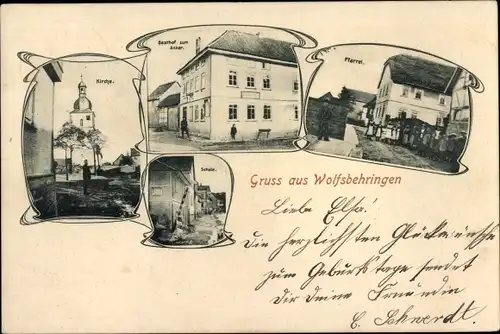 Kirche.
Gasthof zum
Anker.
Pfarrei.
Schule.
Gruss aus Wolfsbehringen
Liebe Elsa!
Die herzlichsten Glückwünsche
zum Geburtstage sendet
Dir Deine Freundin
E. Schwerdt.